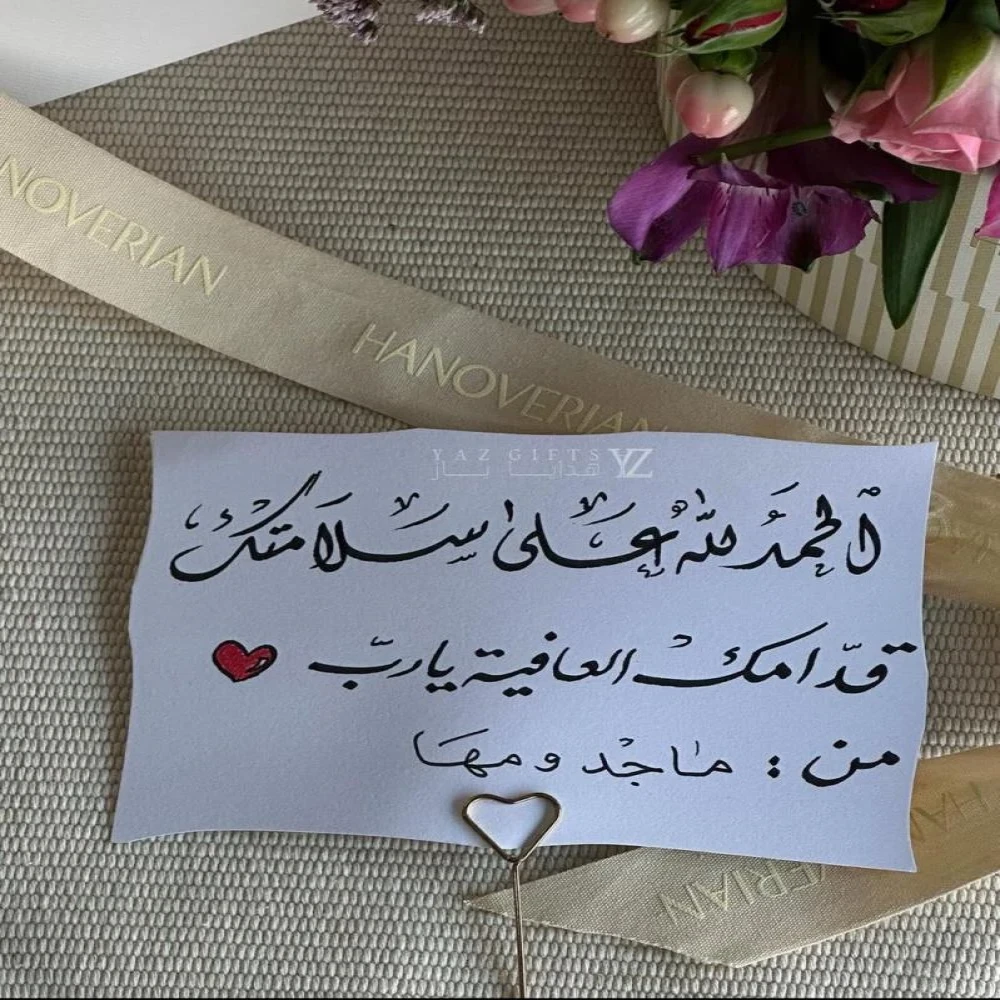 HANOVERIAN
HANOVERIAN
YAZ GIFTS YZ
هدايا يـاز
الحمد لله على سلامتك
قدّامك العافية يارب
من : ماجد ومها
HANOVERIAN